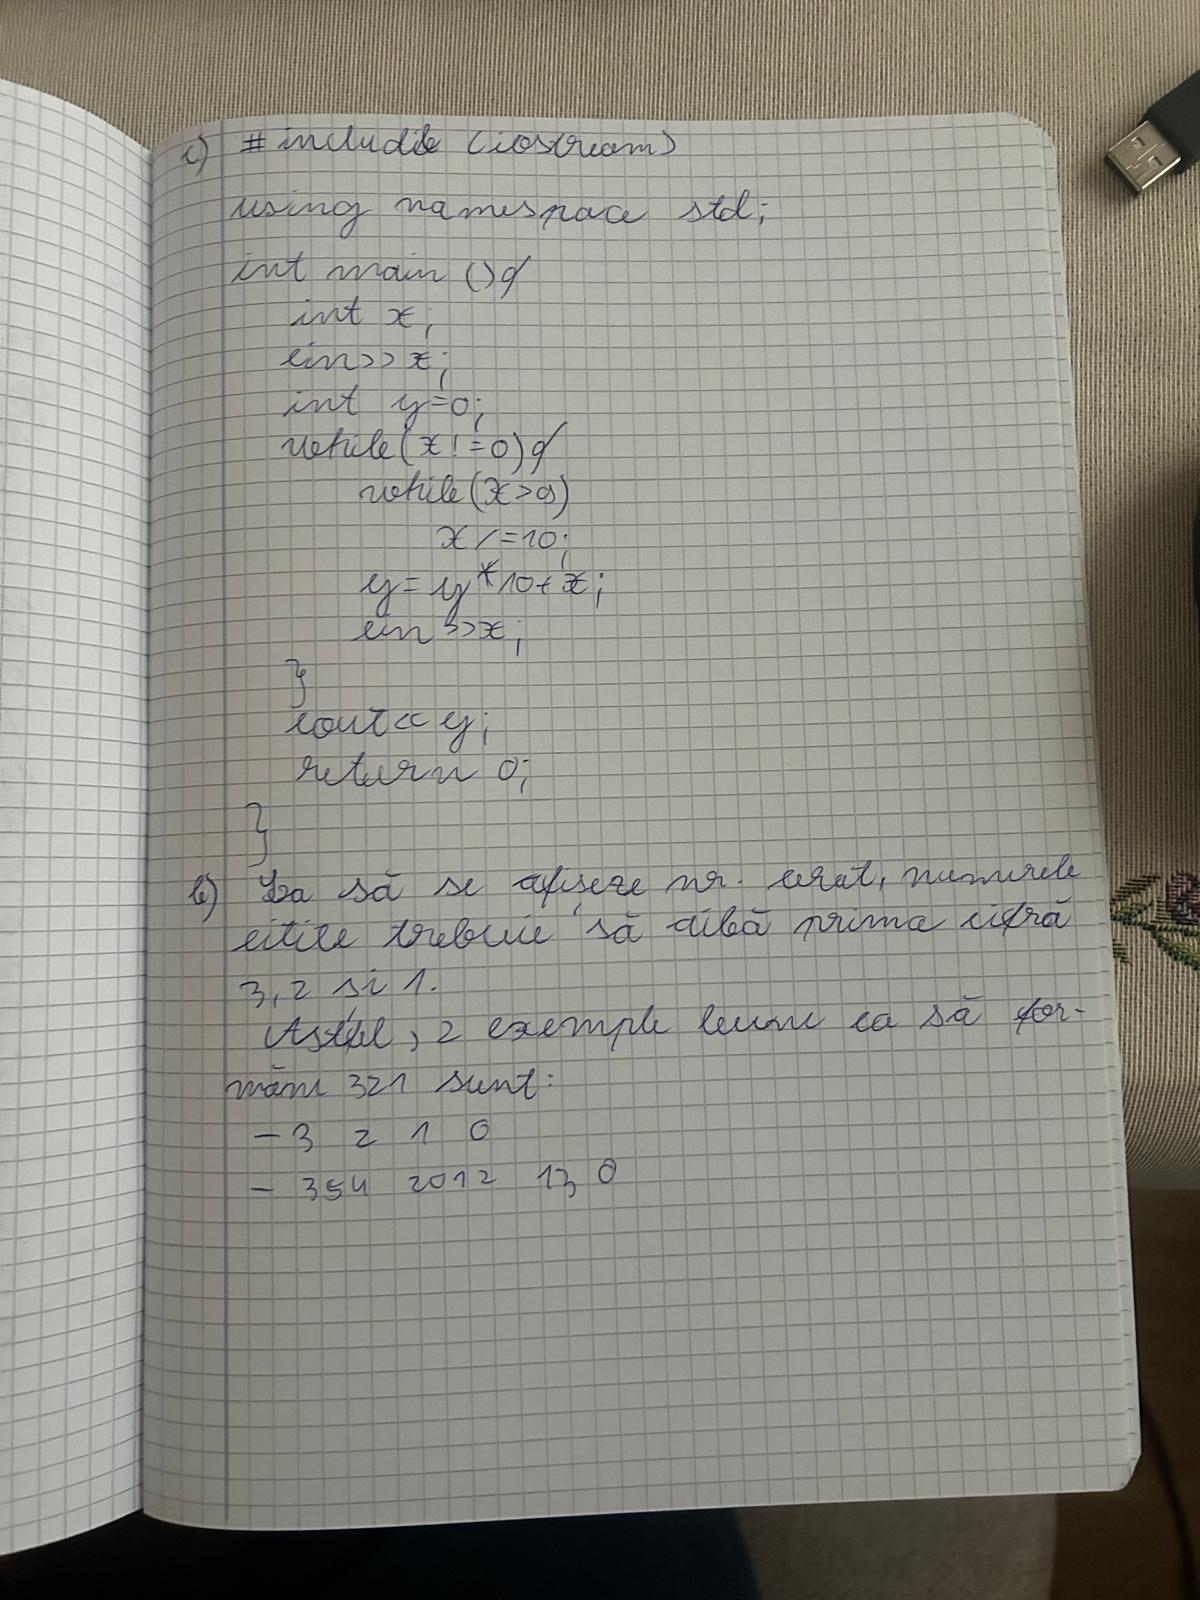 c) #include (iostream)
using namespace std;
int main () {
int x;
cin>>x;
int y=0;
while(x!=0){
while(x>9)
x/=10;
y=y*10+x;
cin>>x;
}
cout<<y;
return 0;
}
b) Ca să se afișeze nr. cerat, numerele
citite trebuie să aibă prima cifră
3, 2 și 1.
Astfel, 2 exemple bune ca să for-
măm 321 sunt:
- 3 2 1 0
- 354 2012 13 0